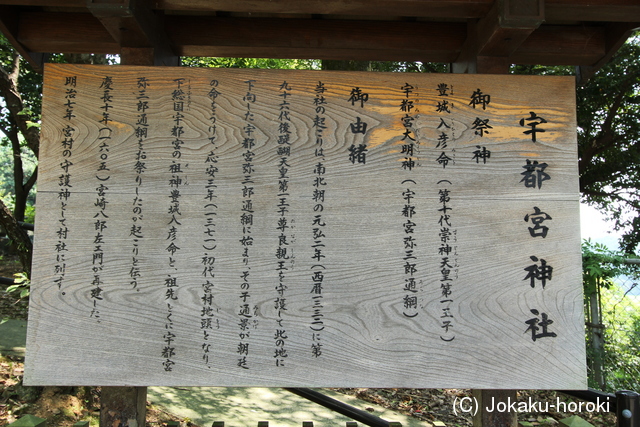 宇都宮神社
御祭神
豊城入彦命（第十代崇神天皇第一王子）
宇都宮大明神（宇都宮弥三郎通綱）
御由緒
当社の起こりは、南北朝の元弘二年（西暦一三三二）に第
九十六代後醍醐天皇第一王子尊良親王を守護して此の地に
下向した宇都宮弥三郎通綱に始まり、その子通景が朝廷
の命をうけて、応安三年（一三七一）初代、宮村地頭となり、
下総国宇都宮の祖神豊城入彦命と、祖先とくに宇都宮
弥三郎通綱をお祭りしたのが起こりと伝う。
慶長十年（一六〇五）宮崎八郎左エ門が再建した。
明治七年 宮村の守護神として村社に列す。
(C) Jokaku-horoki